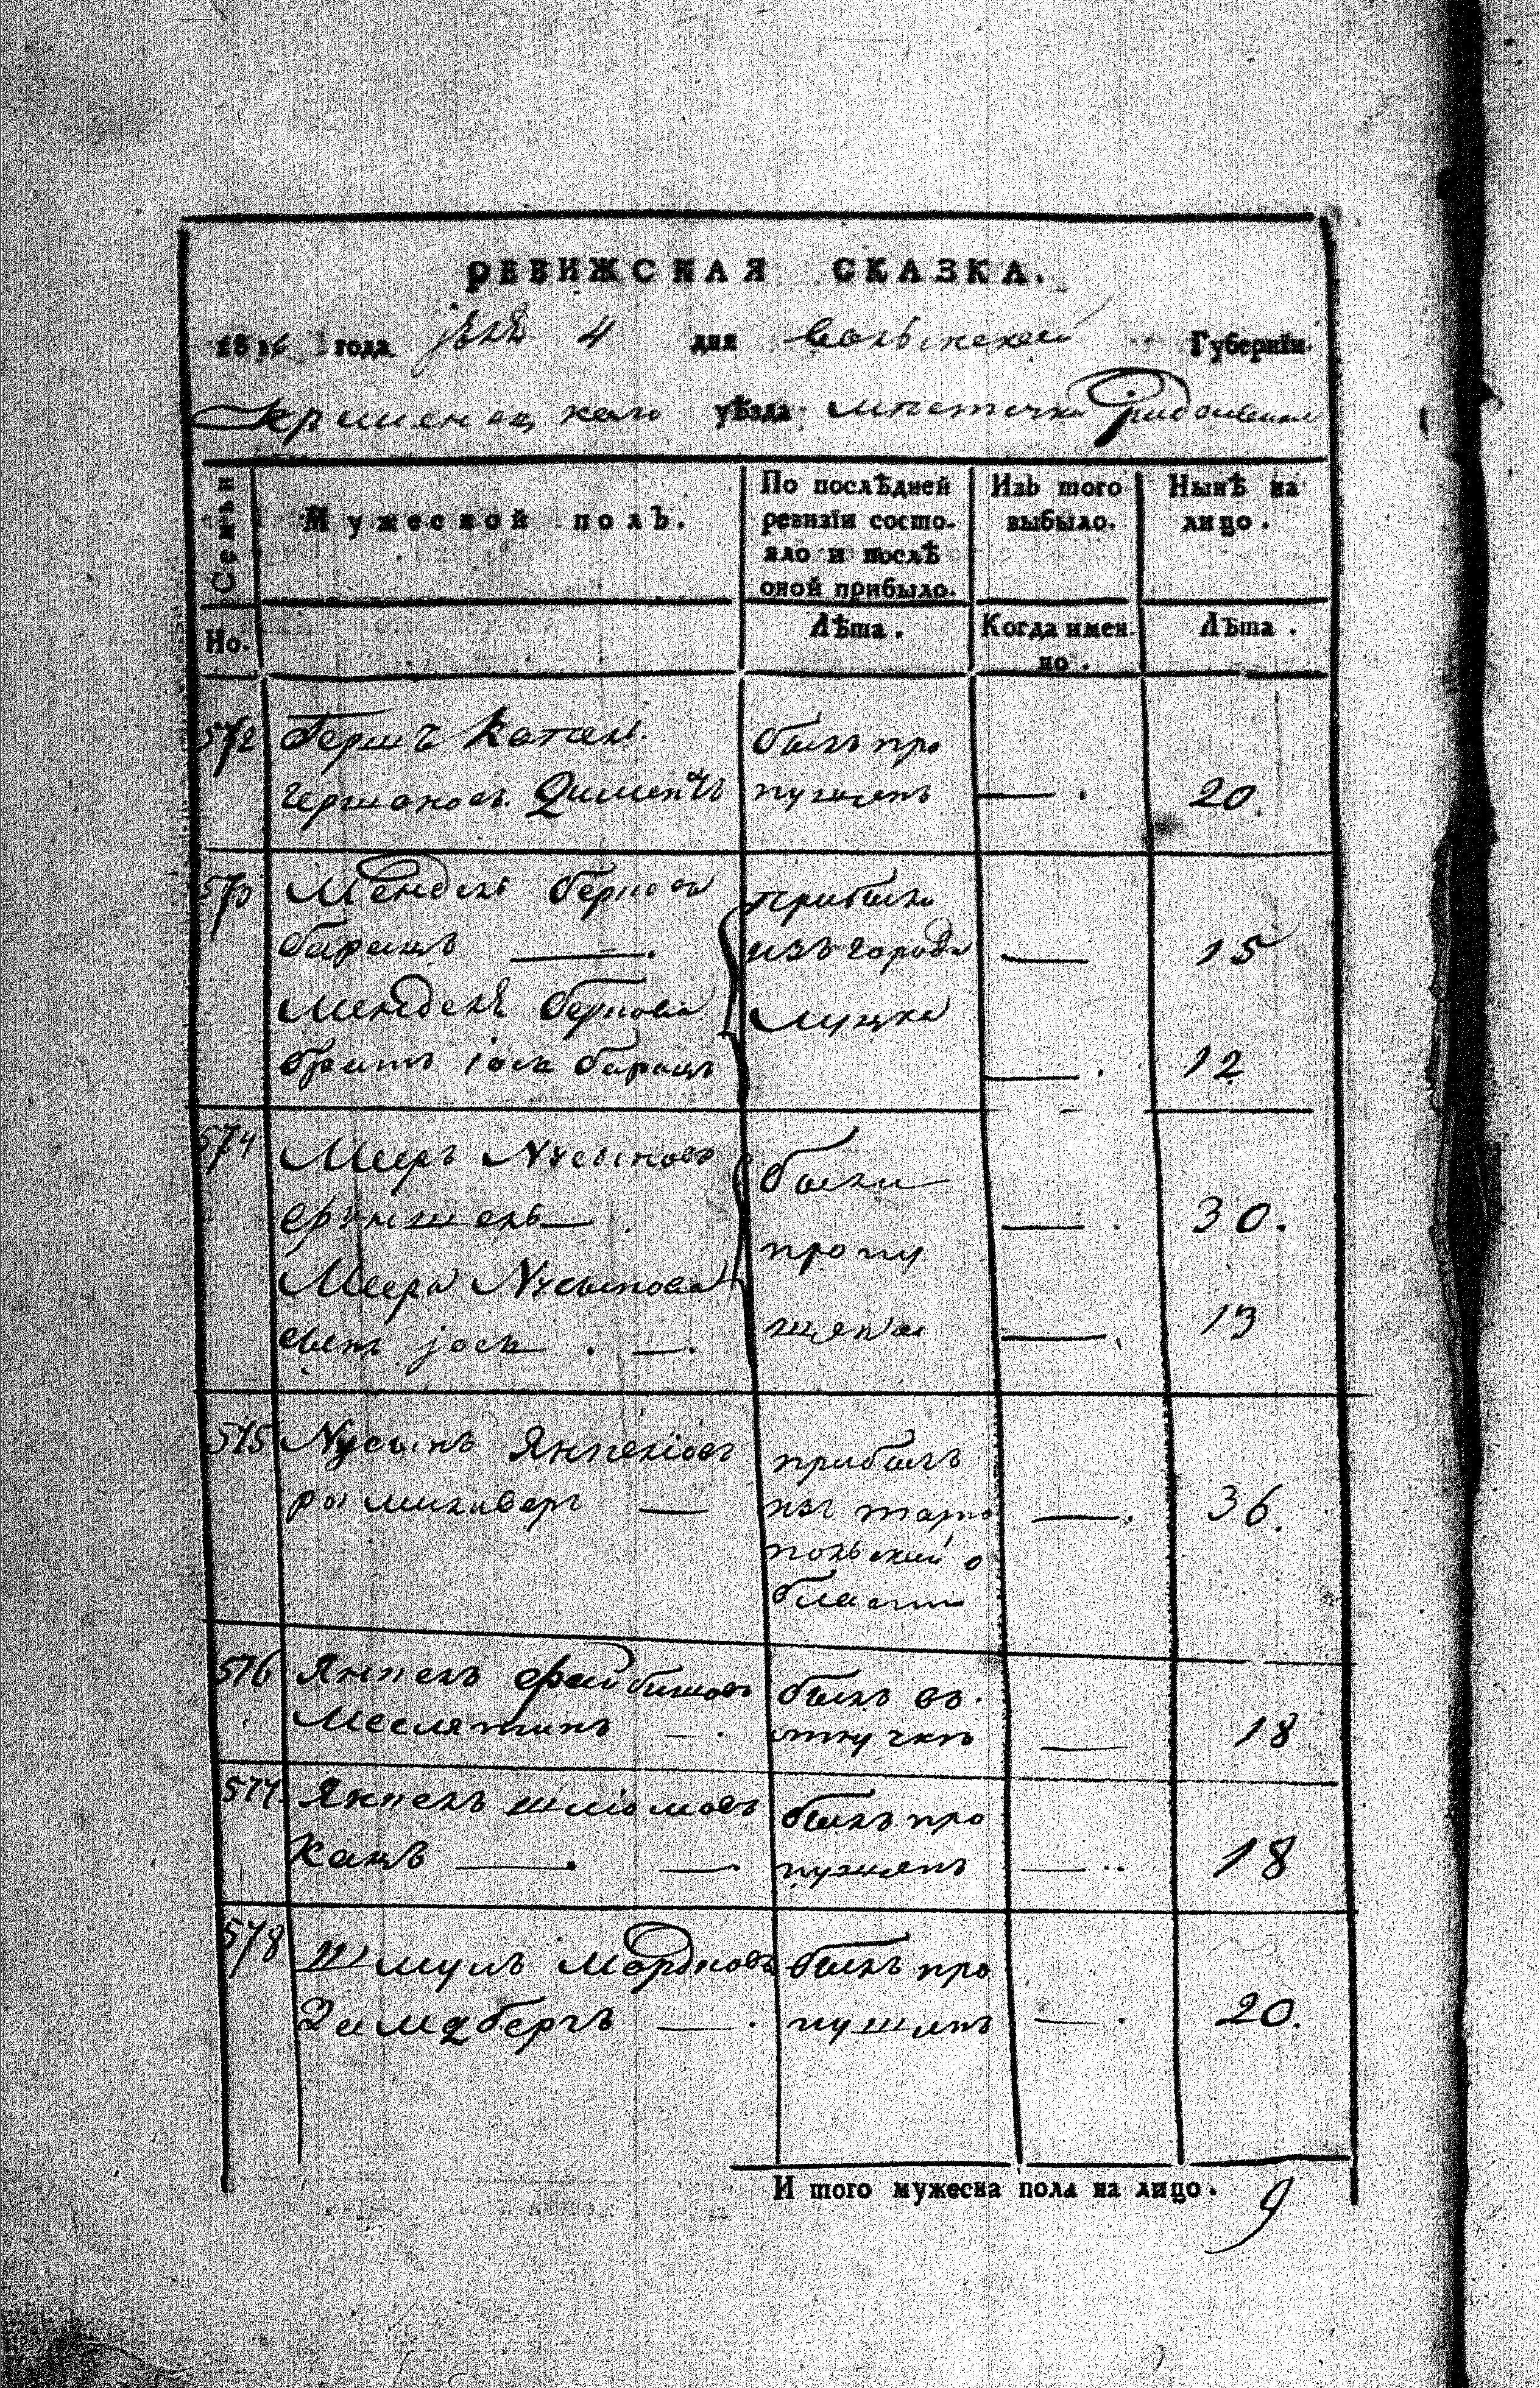 РЕВИЖСКАЯ СКАЗКА.
1816 года 4 дня Волынской Губернїи
Кременецкаго уѣзда мѣстечка Радзивилова
Семьи
Мужеской полъ.
По послѣдней
ревизїи состо-
яло и послѣ
оной прибыло.
Изъ того
выбыло.
Нынѣ на
лицо.
Но.
Лѣта.
Когда имен-
но.
Лѣта.
572 Герш
Гершоновъ
былъ про
пущенъ
20.
573 Мендель Берков
Барацъ —.
Менделя Беркова
братъ Іось Барацъ
прибыли
изъ города
Луцка
— 15
—. 12
574 Мееръ Нусынов
—.
Меера Нусынова
сынъ Јось . —.
были
пропу
щены
—. 30.
—. 13
575 Нусынъ Янкелїов
—
прибылъ
изъ тарно
польской о
бласти
—. 36.
576 Янкель Файбишовъ
Меслятинъ — .
былъ въ
отлучкѣ
— 18
577. Янкель Шліомовъ
Кацъ —. —.
былъ про
пущенъ
—.. 18
578 Шмуль Мордковъ
Замдбергъ — .
былъ про
пущенъ
—. 20.
И того мужеска пола на лицо. 9